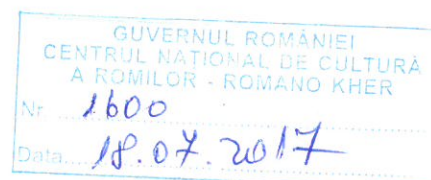 GUVERNUL ROMÂNIEI
CENTRUL NAȚIONAL DE CULTURĂ
A ROMILOR - ROMANO KHER
Nr. ....1600
Data....18.07.2017